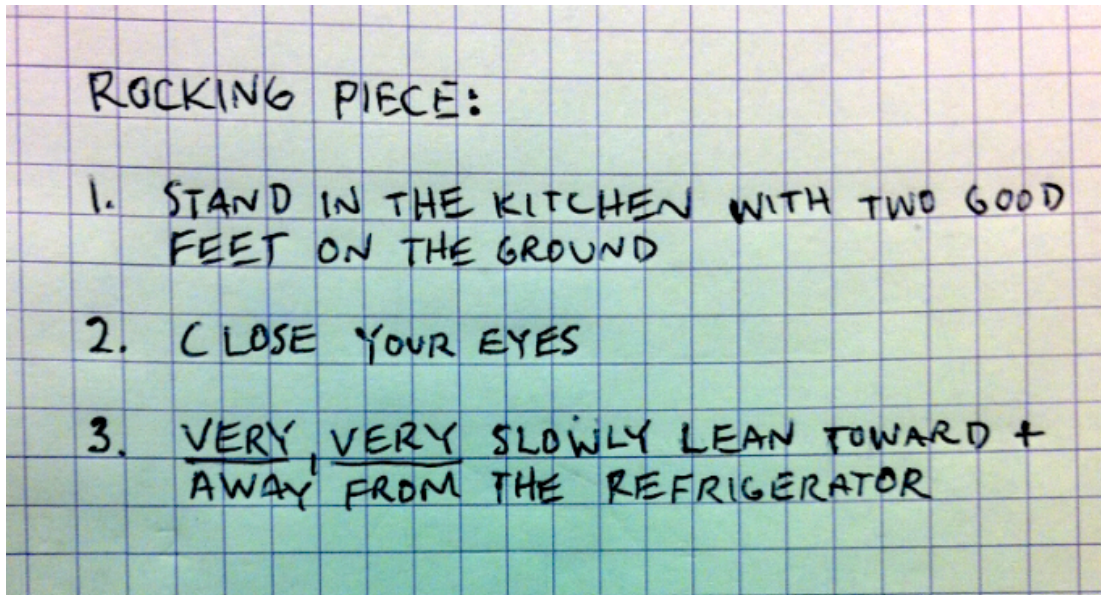 ROCKING PIECE:
1. STAND IN THE KITCHEN WITH TWO GOOD
FEET ON THE GROUND
2. CLOSE YOUR EYES
3. VERY, VERY SLOWLY LEAN TOWARD +
AWAY FROM THE REFRIGERATOR